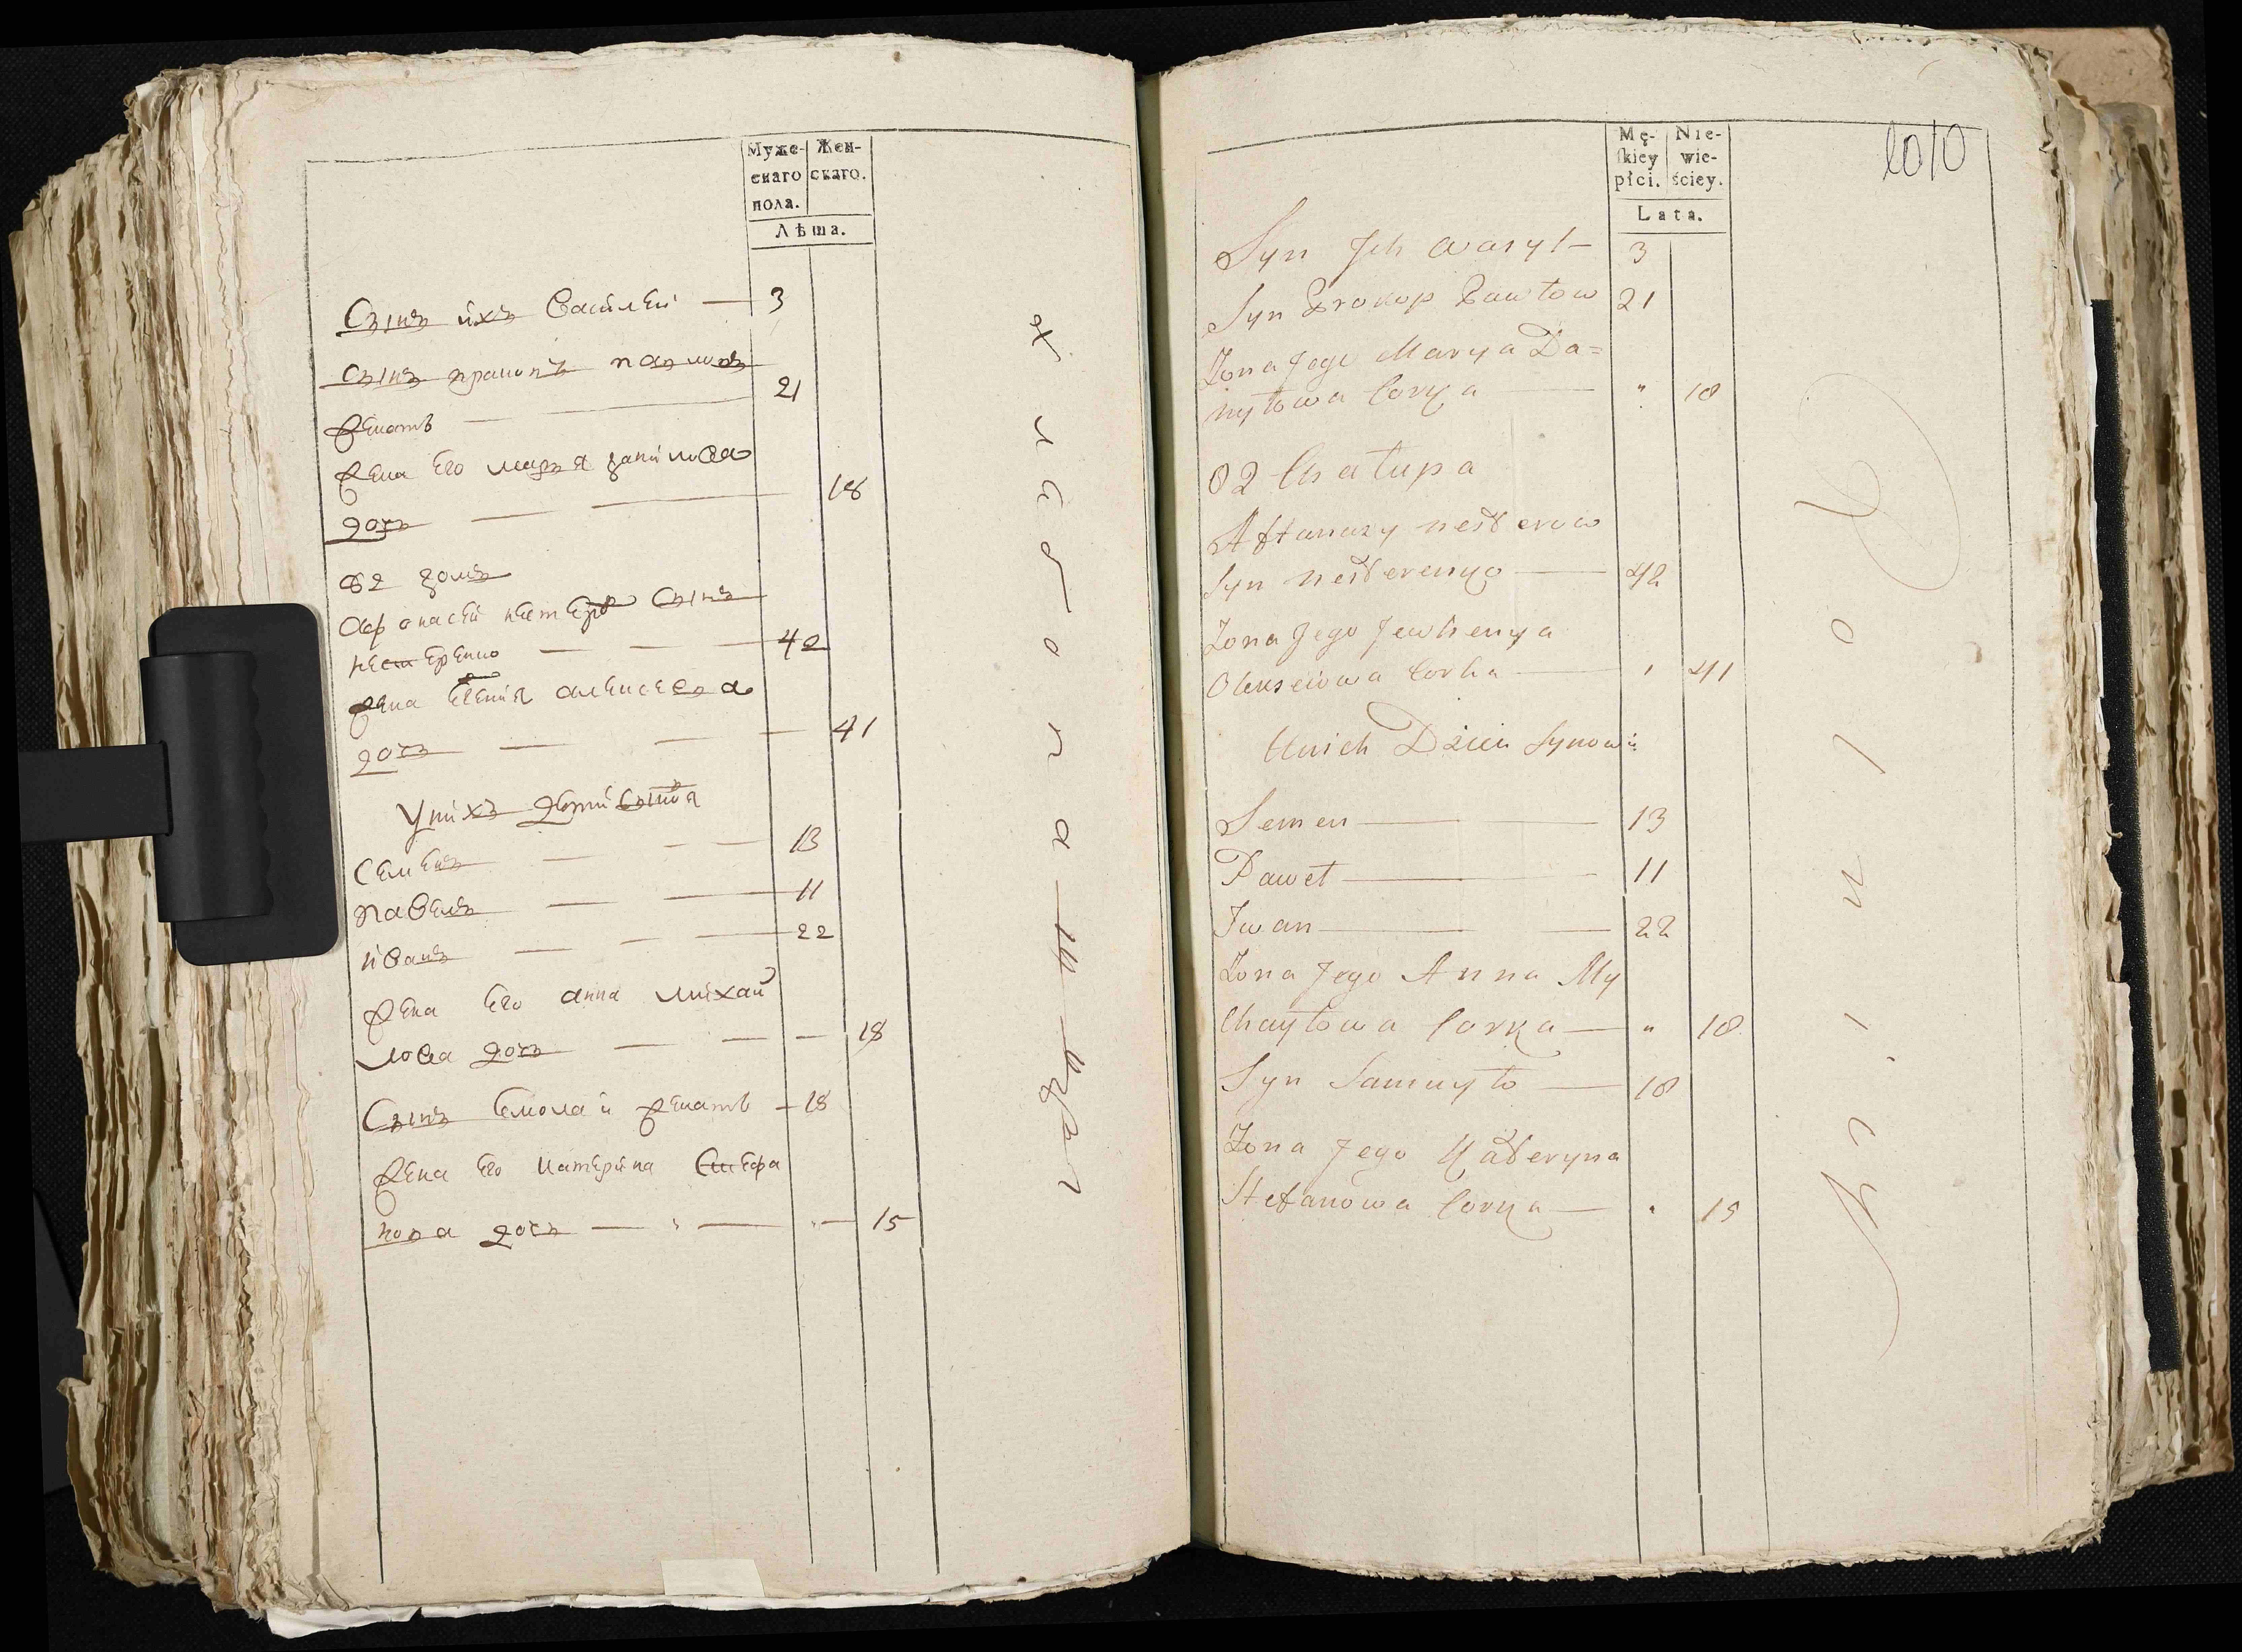 Муже-
скаго
пола.
Жен-
скаго.
Лѣта.
Сынъ ихъ Василей — 3
Сынъ прокопъ павловъ
женатъ — 21
жена Его марья данилова
дочь — 18
82 домъ
Афонасей нестеровъ Сынъ
нестеренко — 42
жена Евгенiя алексеева
дочь — 41
У нихъ дети Сыновя
Семенъ — 13
павелъ — 11
иванъ — 22
жена Его анна михай
лова дочь — 18
Сынъ женатъ — 18
жена Его катерина Стефа
нова дочь — 15
Mę-
skiey
płci.
Nie-
wie-
ściey.
Lata.
1010
Syn Ich Wasyl — 3
Syn Prokop Pawłow 21
Żona Jego Marya Da=
nyłowa Corka — " 18
82 Chałupa
Aftanazy nesterow
Syn nesterenko — 42
Żona Jego Jewhenya
Olexeiowa Corka — " 41
Unich Dzieci Synowie
Semen — 13
Paweł — 11
Iwan — 22
Żona Jego Anna My
Chayłowa Corka — " 18
Syn Samuyło — 18
Żona Jego Kateryna
Stefanowa Corka — " 15